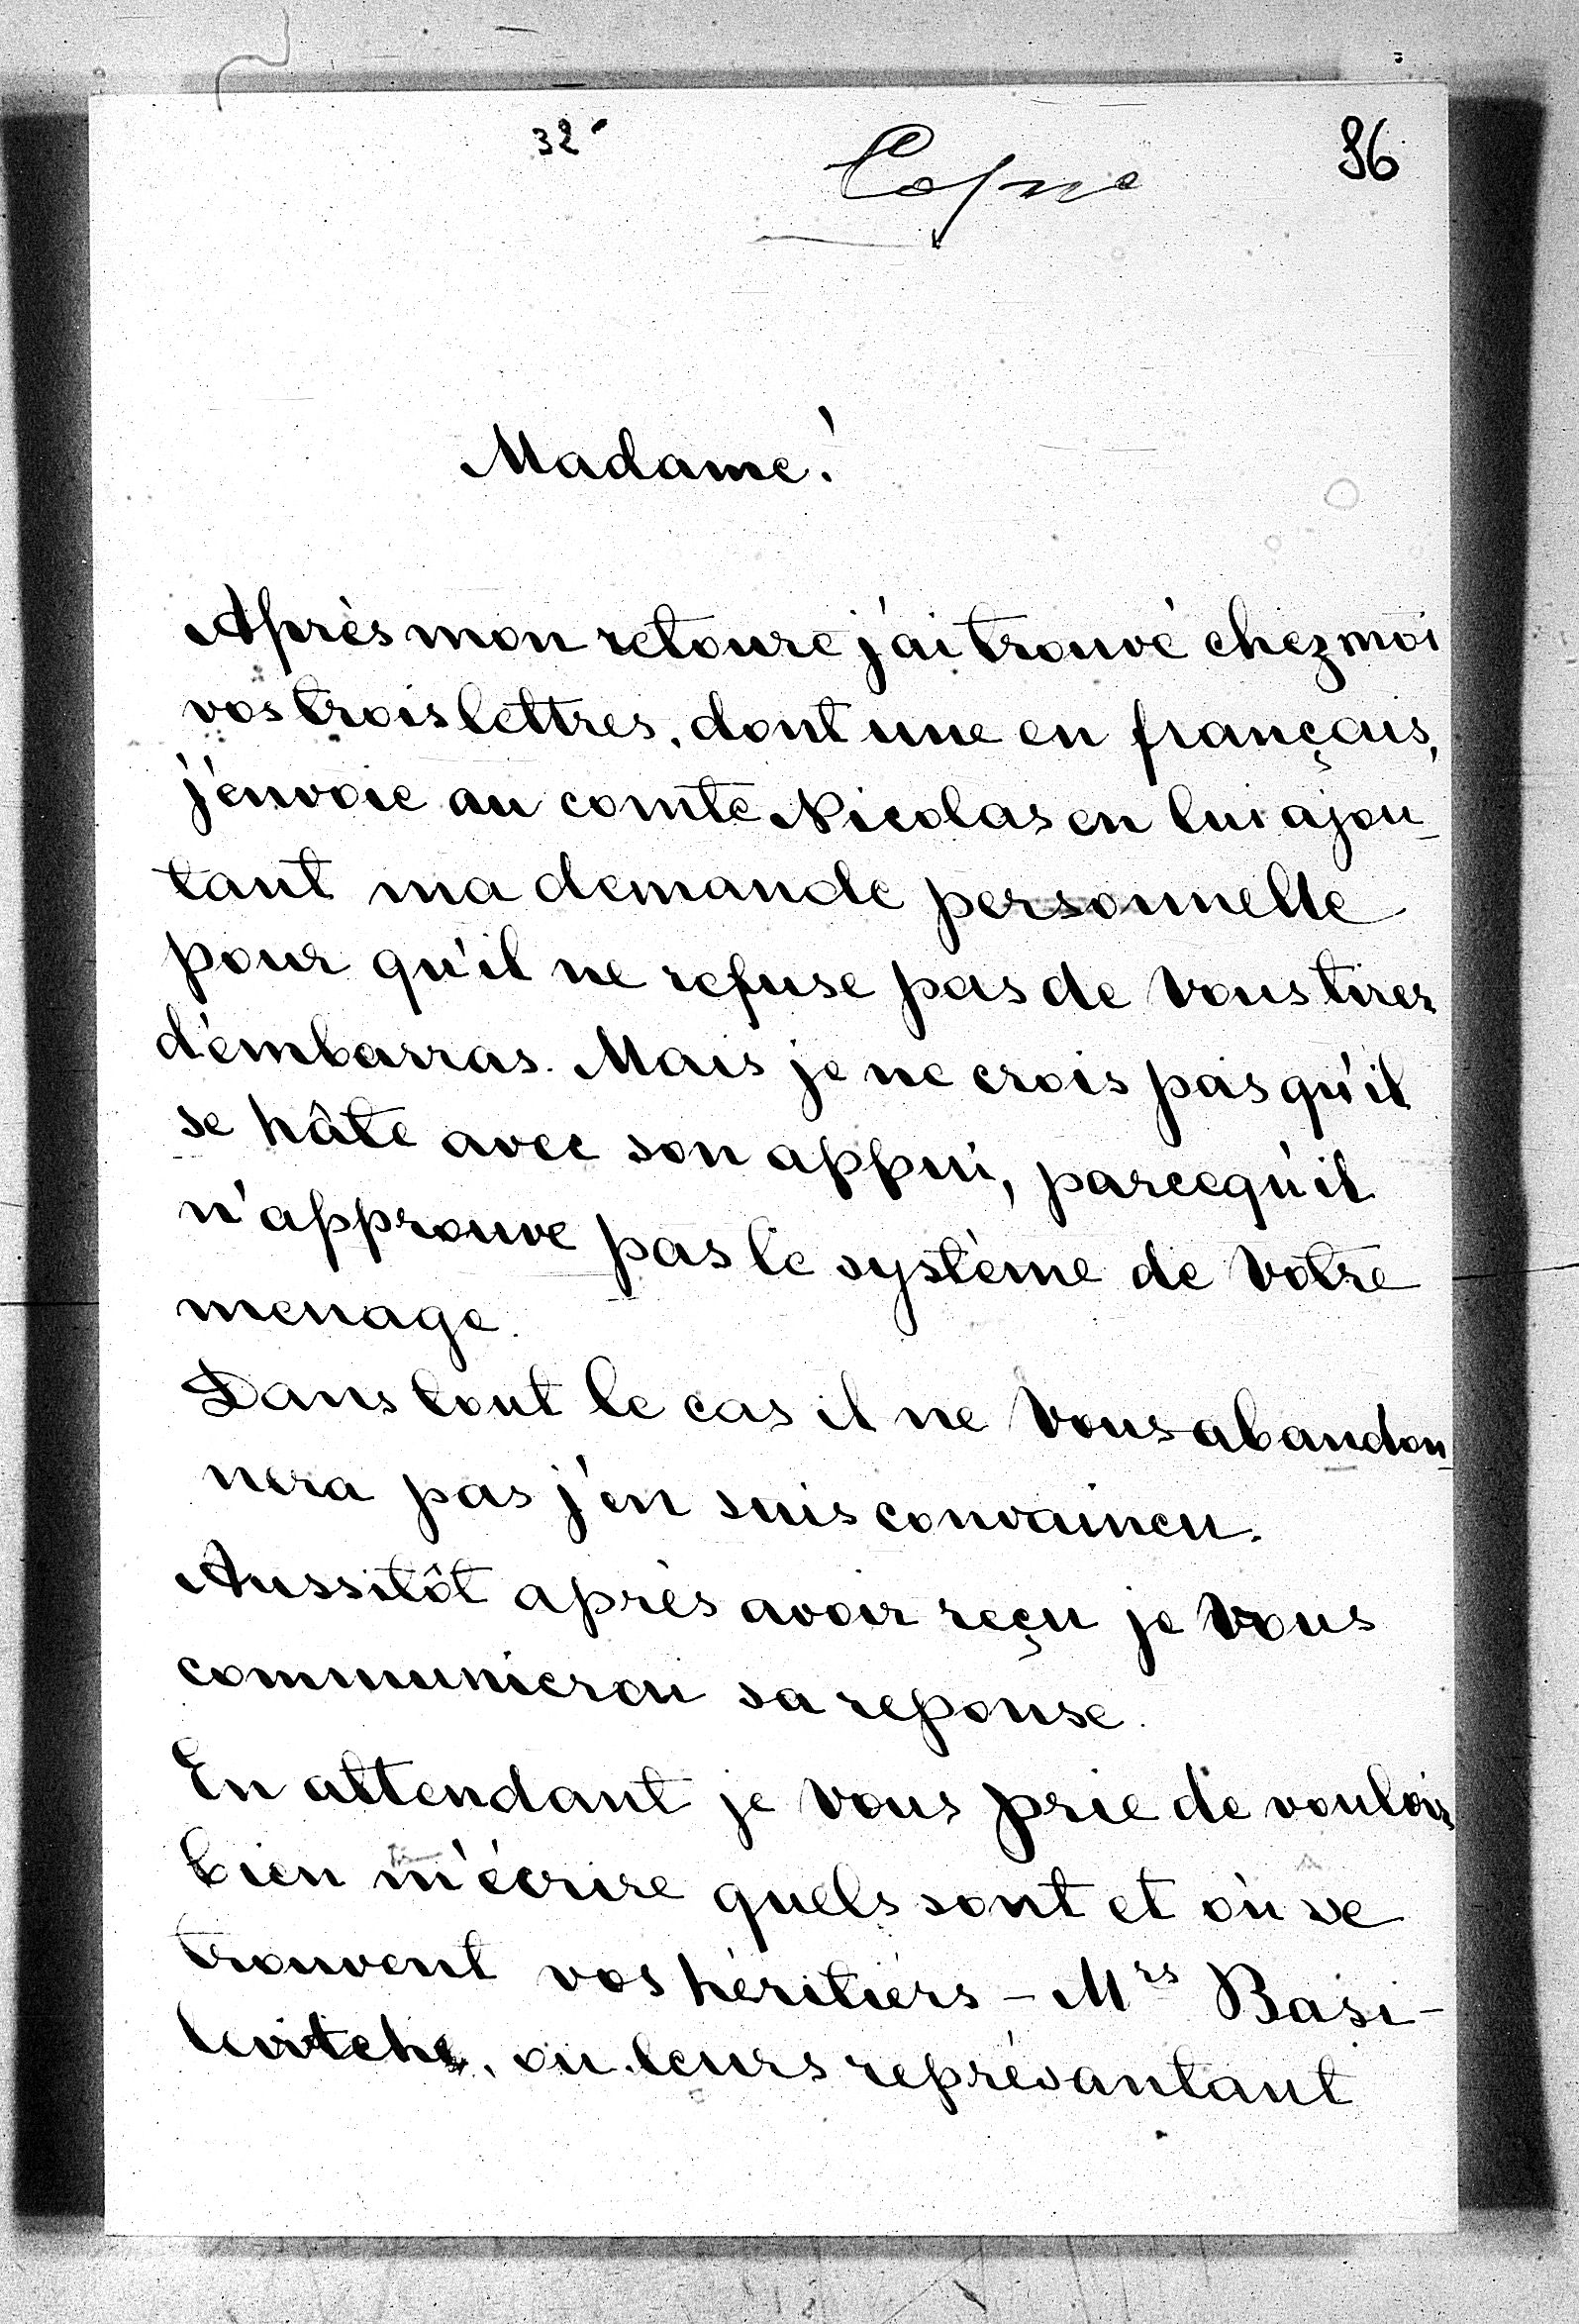 32
Copie
96
Madame!
Après mon retoure j'ai trouvé chez moi
vos trois lettres, dont une en français,
j'envoie au comte Nicolas en lui ajou-
tant ma demande personnelle
pour qu'il ne refuse pas de Vous tirer
d'embarras. Mais je ne crois pas qu'il
se hâte avec son appui, parcequ'il
n'approuve pas le système de Votre
menage.
Dans tout le cas il ne Vous abandon-
nera pas j'en suis convaincu.
Aussitôt après avoir reçu je Vous
communicrai sa reponse.
En attendant je Vous prie de vouloir
bien m'écrire quels sont et où se
trouvent vos héritiérs – Mrs Basi-
lewitche, ou leurs représantant